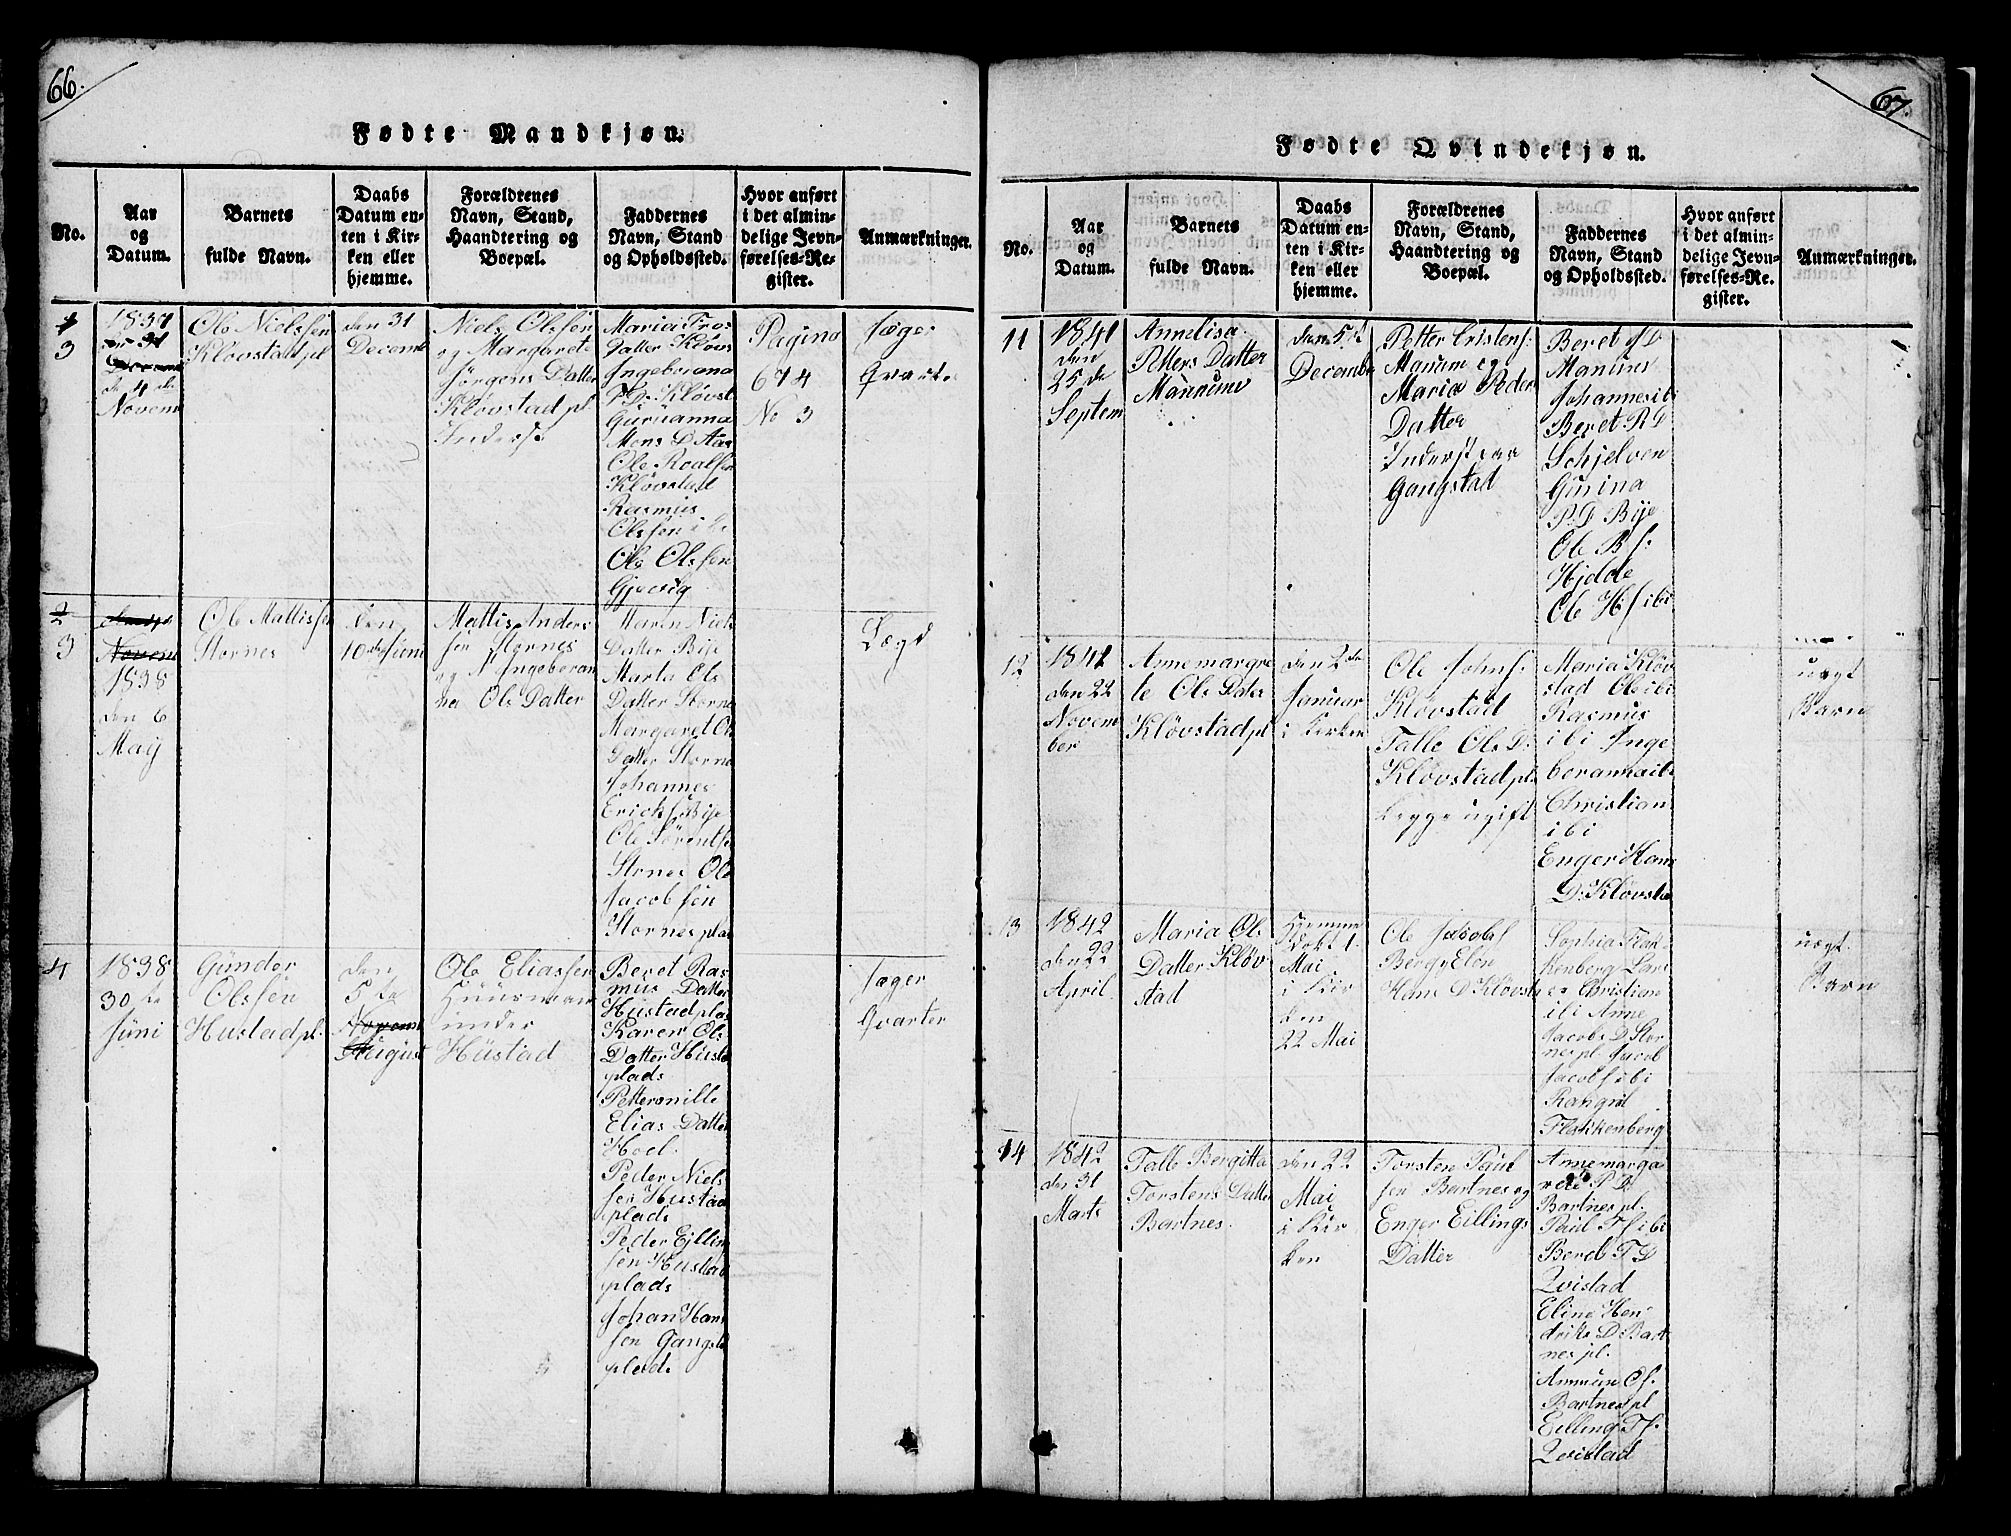 66.
Fødte Mandkjøn.
No.
Aar
og
Datum.
Barnets
fulde Navn.
Daabs
Datum en-
ten i Kir-
ken eller
hjemme.
Forældrenes
Navn, Stand,
Haandtering og
Boepæl.
Faddernes
Navn, Stand
og Opholdssted.
Hvor anført
i det almin-
delige Jevn-
førelses-Re-
gister.
Anmærkninger.
3
1837
4 de
Novem
Ole Nielssen
Kløvstadpl
den 31
Decemb
Niels Olssen
og Margarete
Jørgens Datter
Kløvstadpl
Maria Tros
Datter Kløvs
Ingeborana
T D. Kløvst
Guruanna
Mons D Aas
Ole Roalsen
Kløvstad
Rasmus
Olssen ibi
Ole Olssen
Gjævig
Pagina
674
No 3
Jæger
Qvarte
2
3
Novem
1838
den 6
Maij
Ole Mattissen
Stornes
den
10de Juni
Mattis Anders
sen Stornes
og Ingeboran
na Ols Datter
Maren Niels
Datter Bije
Marta Ols
Datter Storne
Margaret Ols
Datter Storne
Johannes
Erichs Bije
Ole Sørents
Stornes Ole
Jacobsen
Stornes plad
Lægd
4
1838
30 te
Juni
Gunder
Olssen
Hustadpl.
den
5 te
Novem
August
Ole Eliassen
Huusman
under
Hustad
Beret Ras-
mus Datter
Hustadplas
Karen Ols
Datter Husta
plads
Petternille
Elias Datter
Hoel.
Peder Niels
sen Hustad
plads
Peder Ejling
sen Hustad
plads
Johan Han
sen Gangsta
plads
Jæger
Qvarter
67.
Fødte Qvindekjøn.
No.
Aar
og
Datum.
Barnets
fulde Navn.
Daabs
Datum en-
ten i Kir-
ken eller
hjemme.
Forældrenes
Navn, Stand,
Haandtering og
Boepæl.
Faddernes
Navn, Stand
og Opholdssted.
Hvor anført
i det almin-
delige Jevn-
førelses-Re-
gister.
Anmærkninger.
11
1841
den
25 de
Septem
Annelisa
Petters Datter
Mannume
den 5 t
Decembe
Petter Cristens.
Manum og
Maria Peder
Datter
Inderøe
Gangstad
Beret
Manum
Johannes ibi
Beret R D
Schjelven
Gurina
P. D Bije
Ole B s:
Hjdde
Ole H s ibi
12
1841
den 22
Novem
ber
Annemargre
te Ols Dater
Kløvstadpl
den 2 de
Januar
i Kirken
Ole Johns.
Kløvstad
Talle Ols D.
Kløvstadpl.
begge ugift
Maria Kløv
stad Ole ibi
Rasmus
ibi Inge
boranna ibi
Christian
ibi
Enger Hans
D. Kløvsta
uægt
Barn
13
1842
den 22
April
Maria Ols
Datter Kløv
stad
Hjemme
døbt 1.
Mai
i Kir
ken
22 Mai
Ole Jacobs
Berg Elen
Hans D Kløvsta
Sophia Flak-
kenberg Lars
Christian
ibi Anne
Jacobs D Stor
nespl Jacob
Jacobs ibi
Rangnil
Flakkenberg
uægt.
Barn
14
1842
den 31
Marts
Talle Bergitta
Torstens Datter
Bartnes.
den 22
Mai
i Kir
ken
Torsten Paul
sen Bartnes og
Enger Eillings
Datter
Annemarga
rete P D
Bartnespl.
Paul T s ibi
Beret T D
Qvistad
Eline Hen-
driks D Bart
nes pl.
Ammun O s.
Bartnespl
Eilling T s.
Qvistad